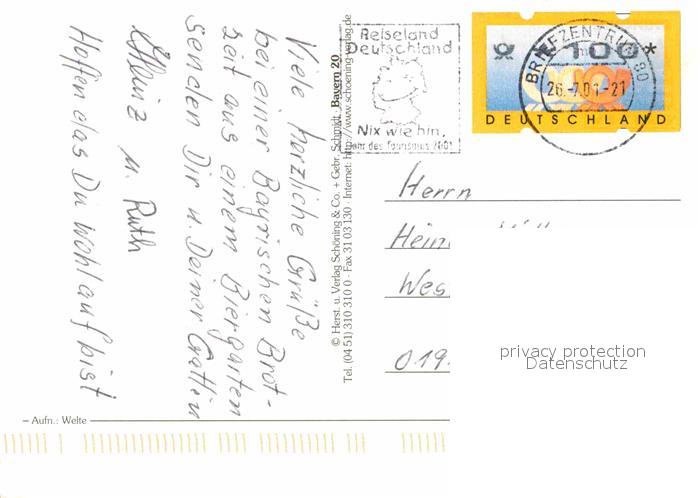 Viele herzliche Grüße
bei einer Bayrischen Brot-
zeit aus einem Biergarten
senden Dir u. Deiner Gattin
Heinz u. Ruth
Hoffen das Du wohlauf bist
© Herst. u. Verlag Schöning & Co. + Gebr. Schmidt Bayern 20
Tel. (04 51) 310 310 0 · Fax 31 03 130 · Internet: http://www.schoening-verlag.de
Reiseland
Deutschland
Nix wie hin.
Jahr des Tourismus 2001
100*
BRIEFZENTRUM 80
26.-7.01-21
DEUTSCHLAND
Herrn
Hein
Wes
019.
privacy protection
Datenschutz
Aufn.: Welte